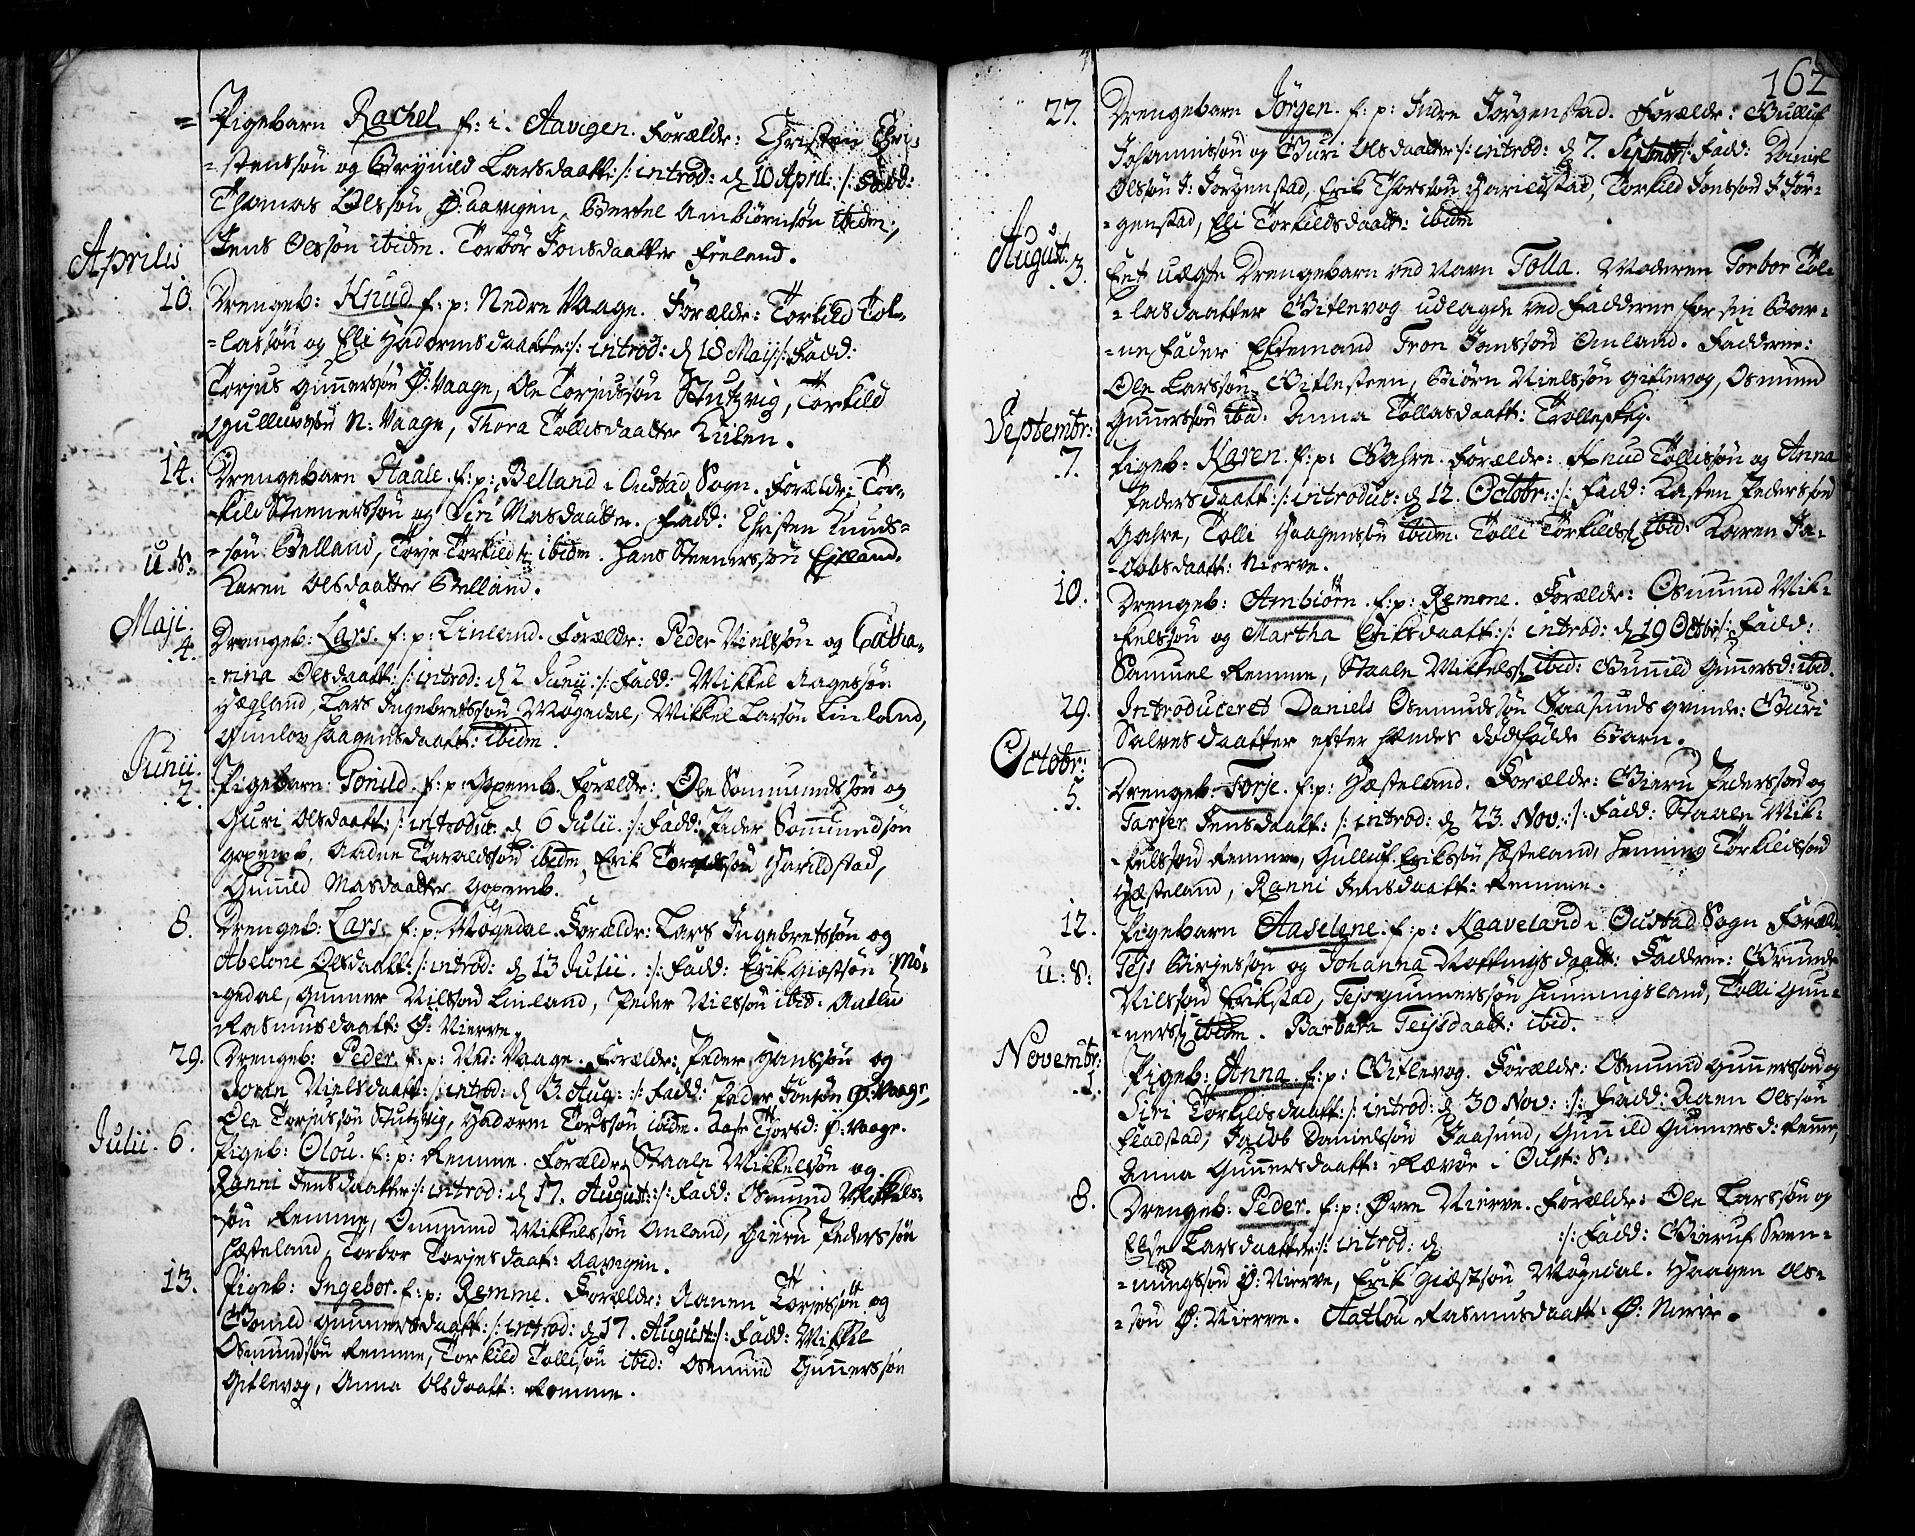 = Pigebarn Rachel f: i Aavigen. Forældr: Christen Chri-
-stenssøn og Brynild Larsdaatt: /: introd: d 10 April: /: Fadd:
Thomas Olssøn Ø: Aavigen, Bertel Ambiörnsøn ibidm:,
Jens Olssøn ibidm. Torbor Jonsdaatter Freland.
Aprilis
10. Drengeb: Knud f: p: Nedre Vaage. Forældr: Torkild Tol-
-lassøn og Eli Hadormsdaatt: /: introd: d 18 Maij /: Fadd:
Torjus Gunnerssøn Ø: Vaage, Ole Torjussøn Stutzvig, Torkild
Gulluvssøn N: Vaage, Thora Tollisdaatter Kilen.
14. Drengebarn Staale f: p: Belland i Oustad Sogn. Forældr: Tor-
-kild Steenerssøn og Siri Masdaatter. Fadd: Christen Knuds-
u: S: -søn Belland, Torje Torkilds: ibidm. Hans Steenerssøn Eilland.
Karen Olsdaatter Belland.
Maji.
4. Drengeb: Lars f: p: Linland. Forældr: Peder Nielssøn og Catha-
-rina Olsdaatt: /: introd: d 2 Junii /: Fadd: Mikkel Aagessøn
Hægland, Lars Ingebretssøn Møgedal, Mikkel Larsøn Linland,
Gunlov Haagensdaatt: ibidm.
Junii.
2. Pigebarn: Gonild f: p: Gopemb. Forældr: Ole Sommundssøn og
Guri Olsdaatt: /: introduc: d 6 Julii. /: Fadd: Peder Sommundsøn
Gopemb, Aadne Taraldssøn ibidm, Erik Toressøn Harildstad,
Gunild Masdaatter Gopemb.
8. Drengeb: Lars f: p: Møgedal. Forældr: Lars Ingebretssøn og
Abelone Olsdaatt: /: introd: d 13 Julii. /: Fadd: Erik Giøstsøn Mø-
-gedal, Gunner Nilssøn Linland, Peder Nilssøn ibid: Aatlu
Rasmusdaatt: Ø: Nierve.
29. Drengeb: Peder f: p: Ned: Vaage. Forældr: Peder Hanssøn og
Joran Nielsdaatt: /: introd: d 3. Aug: /: Fadd: Peder Jonsøn Ø: Vaage,
Ole Torjussøn Stutzvig, Hadorm Torssøn ibidm. Aase Thorsd: Ø: Vaage.
Julii. 6. Pigeb: Olou f: p: Remme. Forældr: Staale Mikkelsøn og
Ranni Jensdaatter /: introd: d 17. August: /: Fadd: Osmund Mikkels-
-søn Remme, Ommund Mikkelssøn Omland, Gieru Pederssøn
Hæsteland, Torbor Torjesdaat: Aavigen.
13. Pigeb: Ingebor f: p: Remme. Forældr: Aanen Torjussøn og
Gonild Gunnersdaatt: /: introd: d 17. August: /: Fadd: Mikkel
Osmundsøn Remme, Torkild Tollisøn ibid: Osmund Gunnerssøn
Gitlevog, Anna Olsdaatt: Remme.
162
27. Drengebarn Jörgen f: p: Indre Jörgenstad. Forældr: Gulluf
Johannissøn og Guri Olsdaatter /: introd: d 7. Septembr: /: Fadd: Daniel
Olssøn I: Jörgenstad, Erik Thorssøn Harildstad, Torkild Jonssøn I: Jör-
-genstad, Eli Torkildsdaatt: ibidm
August.
3. Eet uægte Drengebarn ved Navn Tolla. Moderen Torbor Tol-
-lasdaatter Gitlevog udlagde ved Fadderne for sin Bar-
-ne Fader Ektemand Tron Jonssøn Omland. Fadderne:
Ole Larssøn Gitlesteen, Biörn Nielssøn Gitlevog, Osmund
Gunnerssøn ibid: Anna Tollasdaatt: Trolleskog.
Septembr:
7. Pigeb: Karen f: p: Gahre. Forældr: Knud Tollissøn og Anna
Pedersdaatt: /: introduc: d 12. Octobr: /: Fadd: Kasten Pederssøn
Gahre, Tolli Haagenssøn ibidm. Tolli Torkilds: ibid: Karen Ja-
-cobsdaatt: Nierve.
10. Drengeb: Ambiörn f: p: Remme. Forældr: Osmund Mik-
-kelssøn og Martha Eriksdaatt: /: introd: d 19 Octbr: /: Fadd:
Samuel Remme, Staale Mikkels: ibid: Gunild Gunnersd: ibid.
29. Introduceret Daniels Osmundssøn Faasunds qvinde: Guri
Salvesdaatter efter hendes dødfødde Barn.
Octobr:
5. Drengeb: Torje f: p: Hæsteland. Forældr: Gieru Pederssøn og
Tarjer Jensdaatt: /: introd: d 23. Nov: /: Fadd: Staale Mik-
-kelssøn Remme, Gulluf Erikssøn Hæsteland, Henning Torkildssøn
Hæsteland, Ranni Jensdaatt: Remme.
12. Pigebarn Aaselene f: p: Kaaveland i Oustad Sogn Foræld:
Tejs Birjessøn og Johanna Nottingsdaatt: Fadderne: Grunde
u: S: Nilssøn Erikstad, Tejs Gunnerssøn Hunningsland, Tolli Gun-
-ners: ibidm. Barbara Teijsdaatt: ibid.
Novembr:
1. Pigeb: Anna f: p: Gitlevog. Forældr: Osmund Gunnerssøn og
Siri Torkildsdaatt: /: introd: d 30 Nov: /: Fadd: Aanen Olssøn
Fladstad, Jacob Danielssøn Faasund, Gunnild Gunnersd: Remme,
Anna Gunnersdaatt: Rævør i Oust: S:
8. Drengeb: Peder f: p: Øvre Nierve. Forældr: Ole Larssøn og
Else Larsdaatter /: introd: d /: Fadd: Gieruf Sven-
-nungssøn Ø: Nierve, Erik Giøstsøn Møgedal. Haagen Ols-
-søn Ø: Nierve. Aatlou Rasmusdaatt: Ø: Nierve.